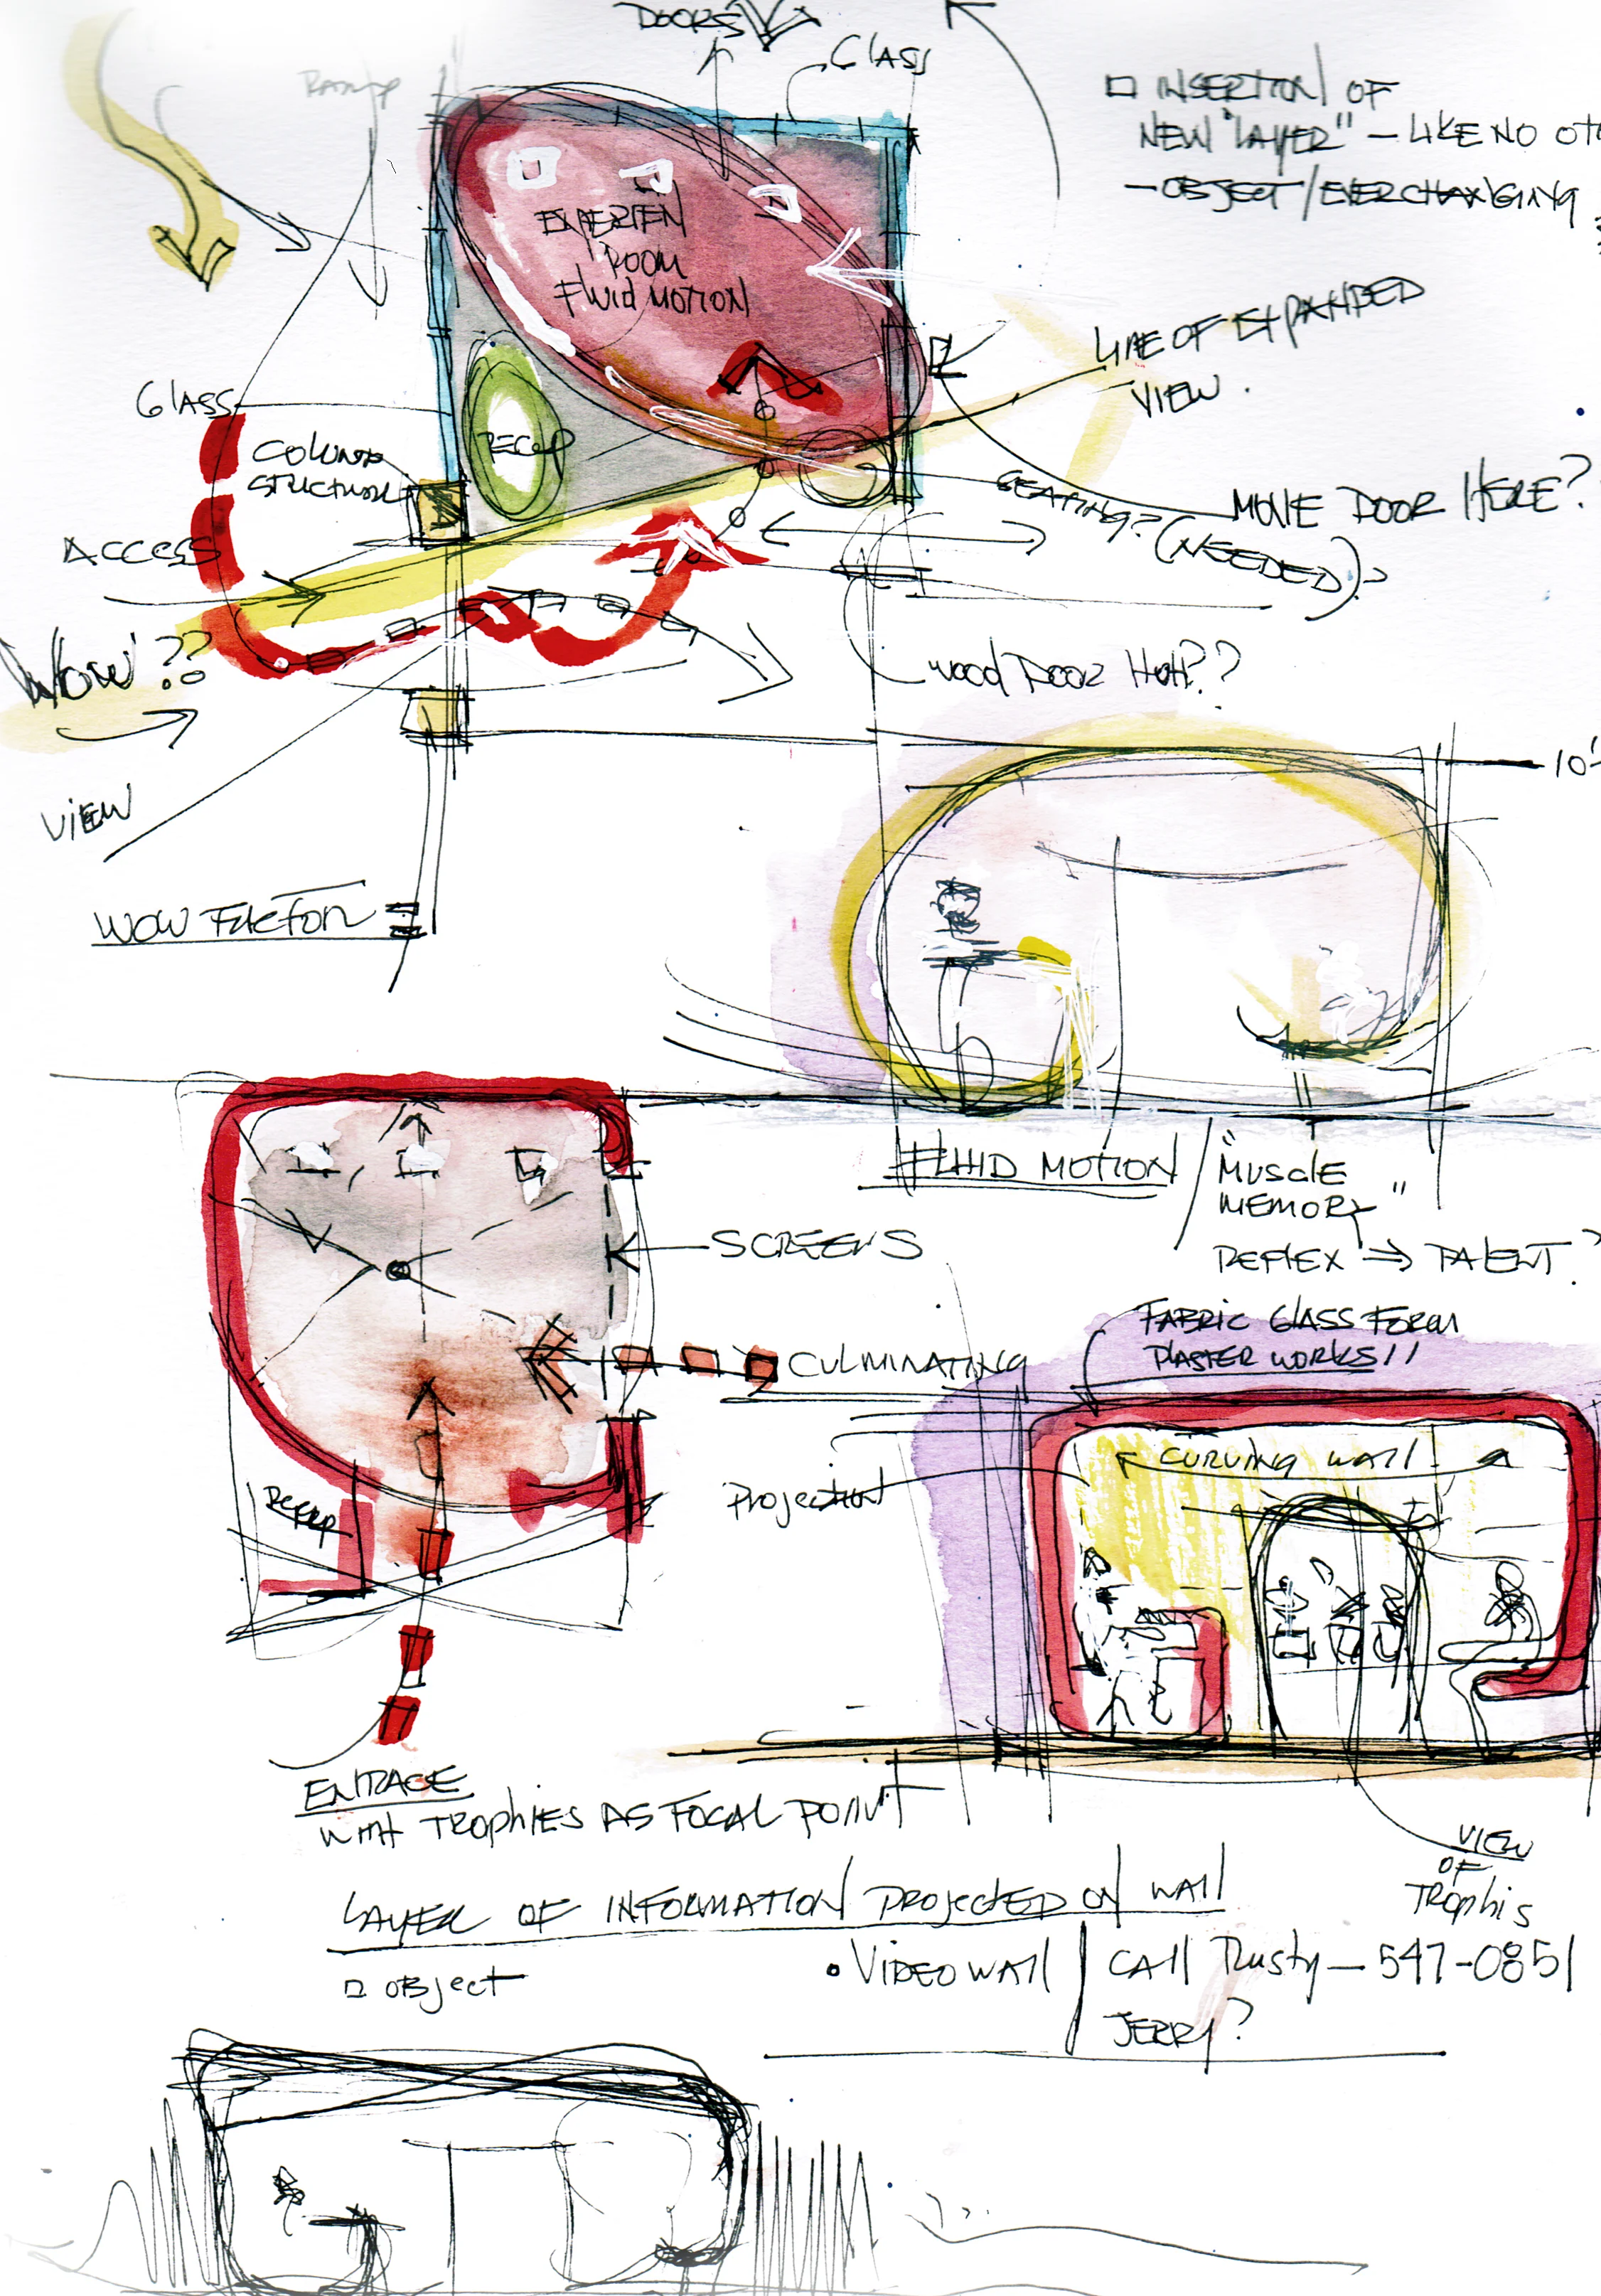 DOORS
GLASS
RAMP
□ INSERTION OF
NEW "LAYER" — LIKE NO OTH
— OBJECT / EVERCHANGING
EXPERIEN
ROOM
FLUID MOTION
LINE OF EXPANDED
VIEW.
GLASS
RECEP
COLUMN
STRUCTURE
SEATING? (NEEDED)?
MOVE DOOR HERE?
ACCESS
WOW??
WOOD DOOR
VIEW
10'
WOW FACTOR
FLUID MOTION / "MUSCLE
MEMORY"
REFLEX → TALENT?
SCREENS
FABRIC GLASS FORM
PLASTER WORKS!!
CULMINATING
CURVING WALL
Projection
RECEP
ENTRACE
WITH TROPHIES AS FOCAL POINT
VIEW
OF
TROPHIS
LAYER OF INFORMATION PROJECTED ON WALL
□ OBJECT
• VIDEO WALL / CALL Rusty — 547-0851
JERRY?